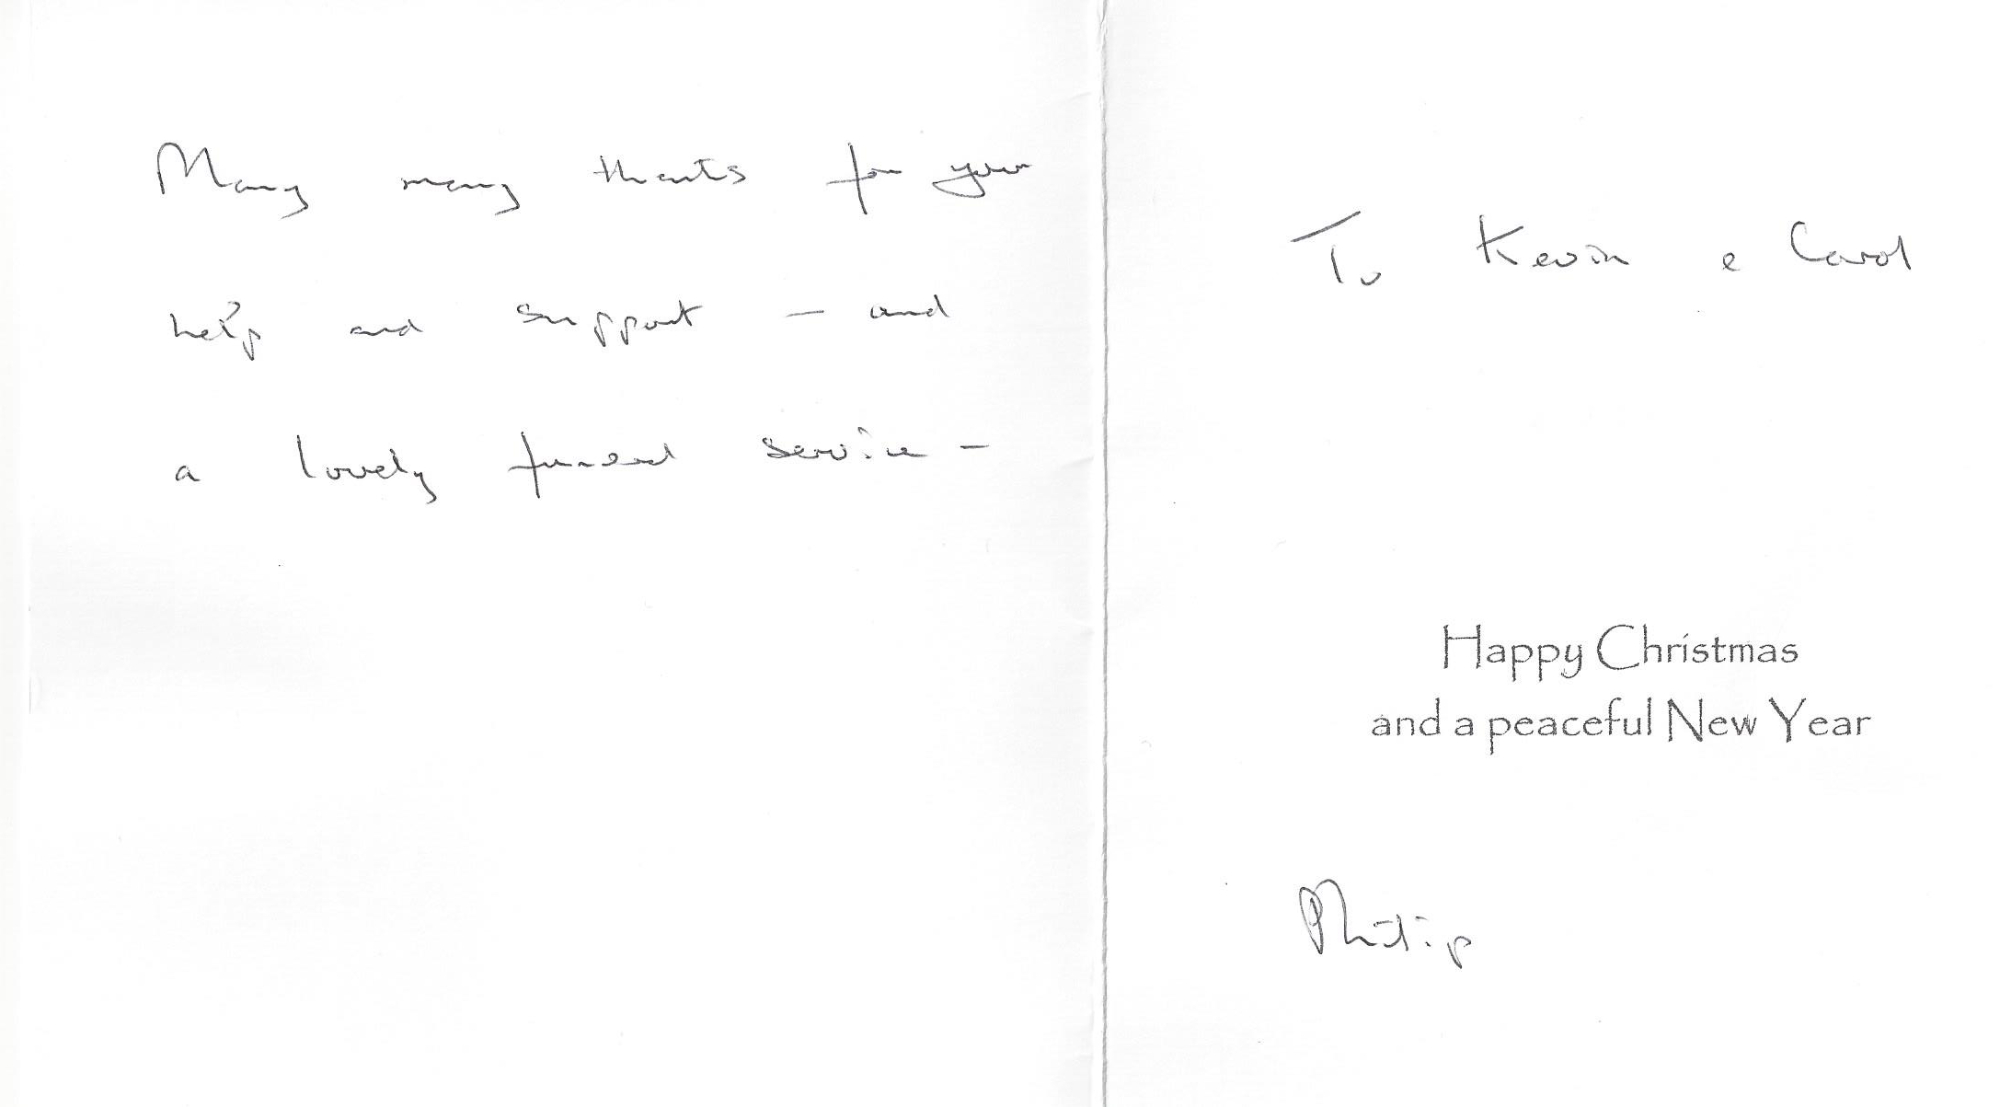 Many many thanks for your
help and support - and
a lovely funeral service -
To Kevin & Carol
Happy Christmas
and a peaceful New Year
Philip